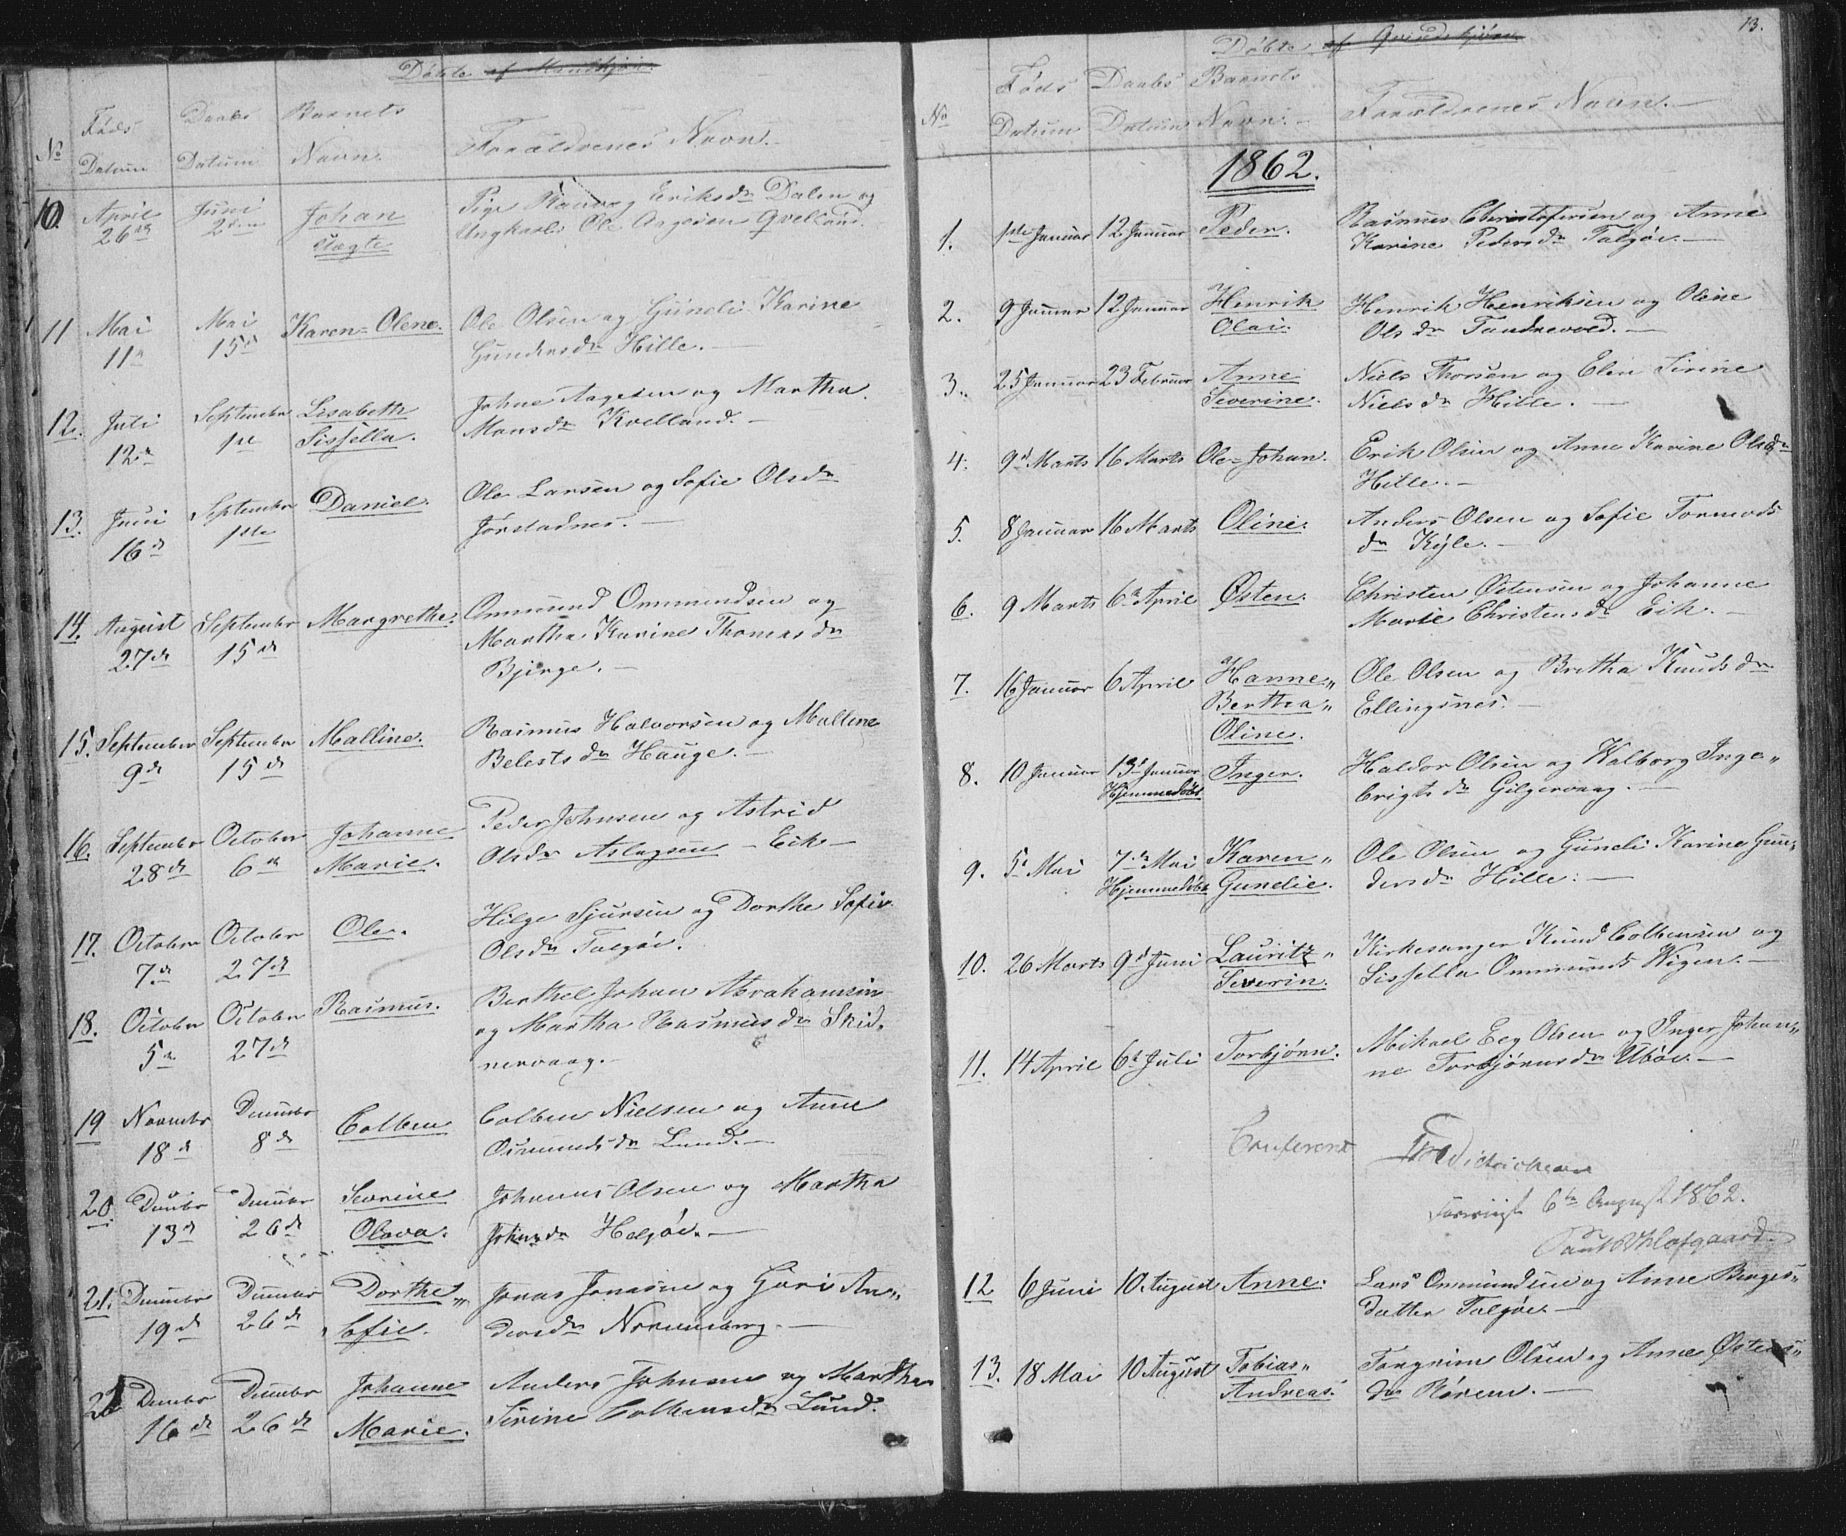 Döbte af Mandkjøn.
No
Føds
Datum
Daabs
Datum
Barnets
Navn.
Forældrenes Navn.
10.
April
26de
Juni
2den
Johan
Aagte
Pige Eriksdr Dalen og
Ungkarl Ole Aagesen Qvelland.
11
Mai
11te
Mai
15de
Karen Olene.
Ole Olsen og Guneli Karine
Gundersdr Hille.
12.
Juli
12te
September
1ste
Lisabeth
Sissella.
Johne Aagesen og Martha
Monsdr Kvelland.
13.
Juni
16de
September
1ste
Daniel.
Ole Larsen og Sofie Olsdr
Jørstadnes.
14.
August
27de
September
15de
Margrethe.
Ommund Ommundsen og
Martha Karine Thomasdr
Bjerge.
15.
September
9de
September
15de
Malline.
Rasmus Halvorsen og Malline
Belestsdr Hauge.
16.
September
28de
October
6te
Johanne
Marie.
Peder Johnsen og Astrid
Olsdr Aslagsen - Eik
17.
October
7de
October
27de
Ole.
Hilge Sjursen og Dorthe Sofie
Olsdr Talgøe.
18.
October
5te
October
27de
Rasmus.
Berthel Johan Abrahamsen
og Martha Rasmusdr Skid,
nervaag.
19
Novembr
18de
Decembr
8de
Colben
Colben Nielsen og Anne
Osmundsdr Lund.
20.
Decbr
13de
Decembr
26de
Severine
Olava.
Johannes Olsen og Martha
Johnsdr Helgøe.
21.
Decembr
19de
Decembr
26de
Dorthe
Sofie.
Jonas Jonasen og Guri An„
dersdr Norumberg.
22
Decembr
16de
Decembr
26de
Johanne
Marie.
Anders Johnsen og Martha
Sirine Colbensdr Lund.
13.
Döbte af Qvindekjøn
No
Føds
Datum
Daabs
Datum
Barnets
Navn.
Forældrenes Navn.
1862.
1.
1ste Januar
12 Januar
Peder.
Rasmus Christofersen og Anne
Karine Pedersdr Talgøe.
2.
9 Januar
12 Januar
Henrik
Olai.
Henrik Henriksen og Oline
Olsdr Tandrevold.
3.
25 Januar
23 Februar
Anne
Severine.
Niels Thorsen og Elen Sirine
Nielsdr Hille.
4.
9de Marts
16 Marts
Ole Johan.
Erik Olsen og Anne Karine Olsdr
Hille.
5.
8 Januar
16 Marts
Oline.
Anders Olsen og Sofie Tormods
dr Kyle.
6.
9 Marts
6te April
Østen.
Christen Østensen og Johanne
Marie Christensdr Eik.
7.
16 Januar
6 April
Hanne„
Bertha„
Oline.
Ole Olsen og Bretha Knudsdr
Ellingsnes.
8.
10 Januar
13de Januar
Hjemmedöbt
Inger.
Haldor Olsen og Valborg Inge„
brigtsdr Gilgervaag.
9.
5te Mai
7de Mai
Hjemmedöbt
Karen„
Gunelie.
Ole Olsen og Guneli Karine Gun„
dersdr Hille.
10.
26 Marts
9de Juni
Lauritz„
Severin.
Kirkesanger Knud Colbensen og
Sissella Ommunds Vigen.
11.
14 April
6te Juli
Torbjønn.
Mikael Eeg Olsen og Inger Johan„
ne Torbjørnsdr Ubøe.
Confereret
6te August 1862.
12
6 Juni
10 August
Anne.
Lars Ommundsen og Anne Børges„
datter Talgøe.
13.
18 Mai
10 August
Tobias„
Andreas.
Torgrim Olsen og Anne Østens„
dr Rørem.